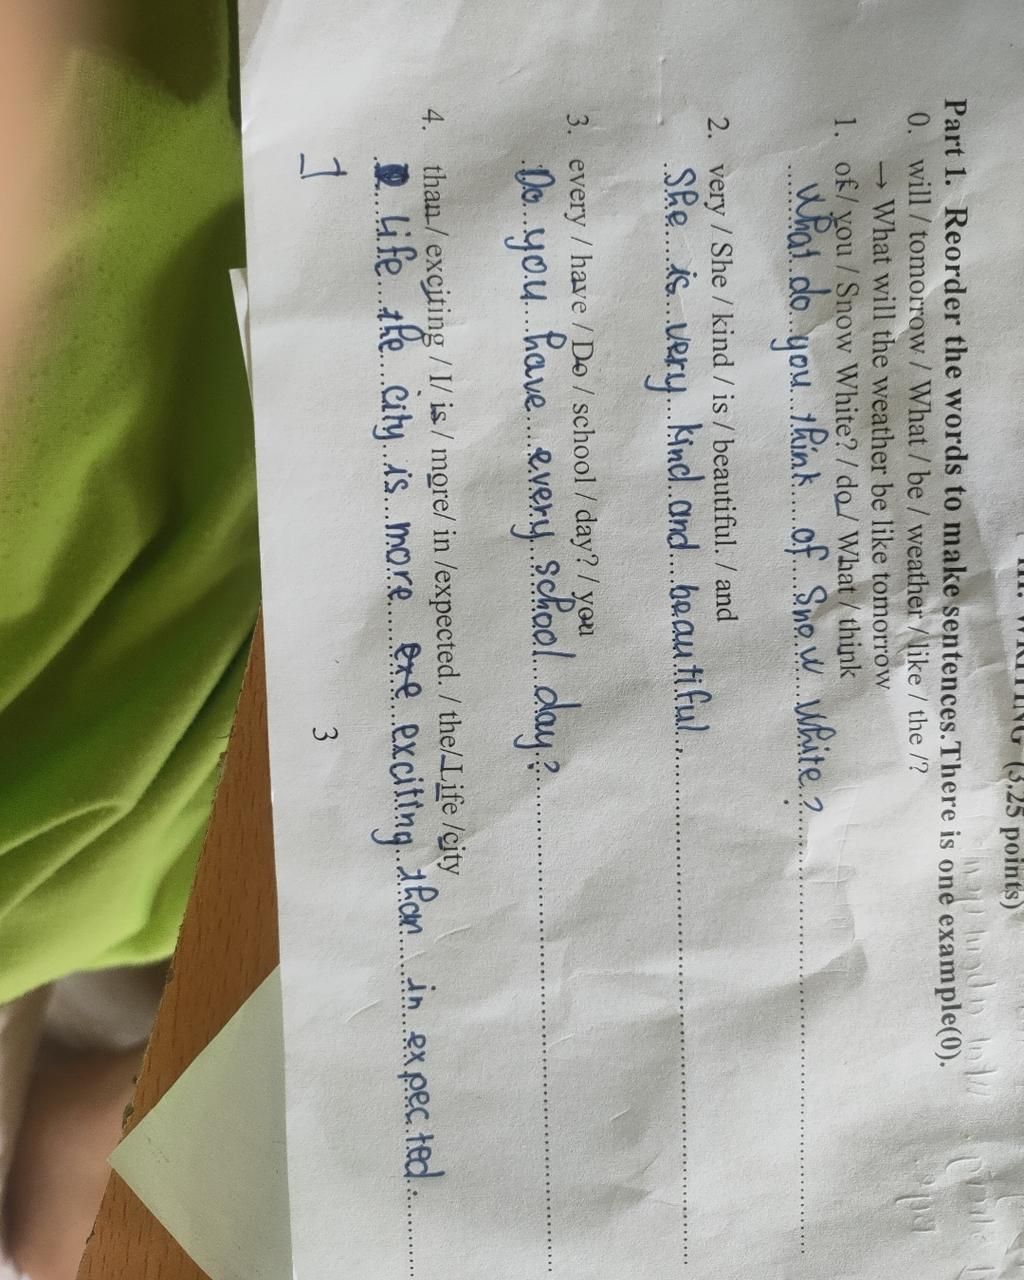 III. WRITING (3.25 points)
Part 1. Reorder the words to make sentences.There is one example(0).
0. will / tomorrow / What / be / weather / like / the /?
→ What will the weather be like tomorrow
1. of/ you / Snow White? / do / What / think
What do you think of Snow White?
2. very / She / kind / is / beautiful. / and
She is very kind and beautiful.
3. every / have / Do / school / day? / you
Do you have every school day?
4. than / exciting / I/ is / more/ in /expected. / the/ Life /city
Life the city is more exciting than in expected.
3